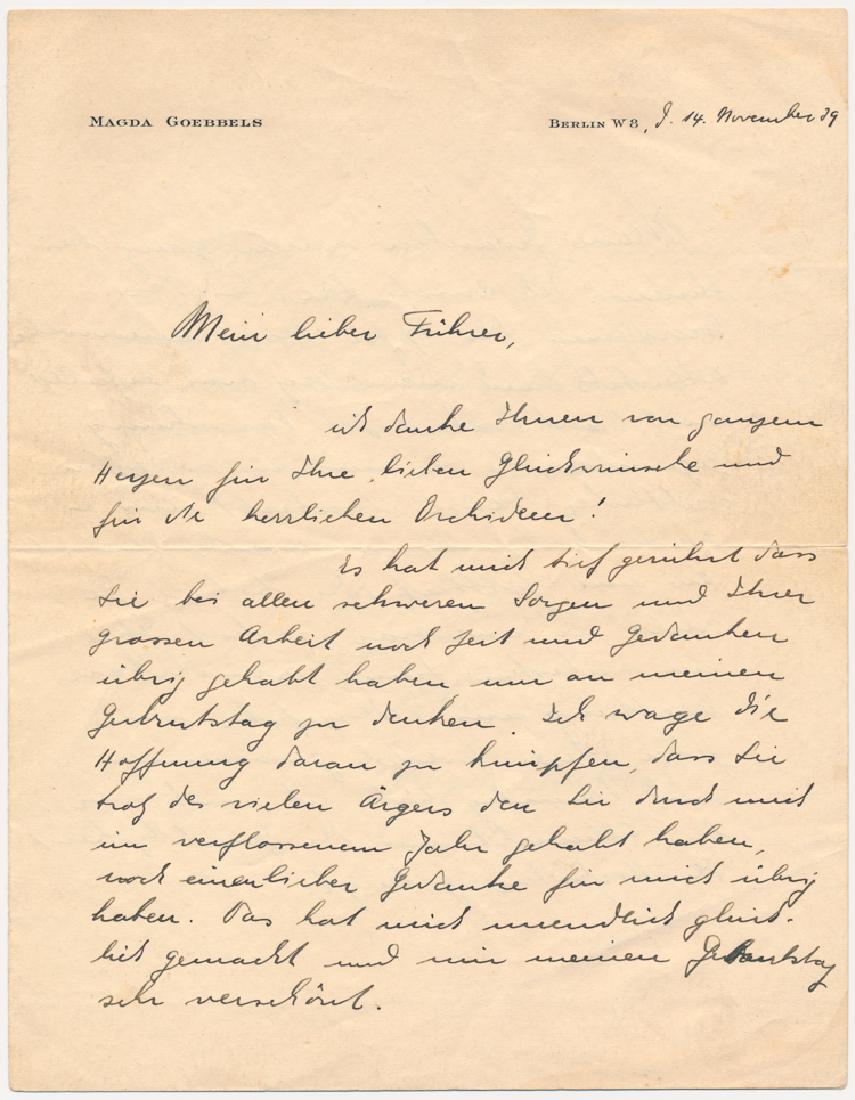 MAGDA GOEBBELS
BERLIN W8, d. 14. November 39
Mein lieber Führer,
ich danke Ihnen von ganzem
Herzen für Ihre lieben Glückwünsche und
für die herrlichen Orchideen!
Es hat mich tief gerührt dass
Sie bei allen schweren Sorgen und Ihrer
grossen Arbeit noch Zeit und Gedanken
übrig gehabt haben um an meinen
Geburtstag zu denken. Ich wage die
Hoffnung daran zu knüpfen, dass Sie
trotz des vielen Ärgers den Sie durch mich
im verflossenem Jahr gehabt haben,
noch einen lieben Gedanken für mich übrig
haben. Das hat mich unendlich glück-
lich gemacht und mir meinen Geburtstag
sehr verschönt.